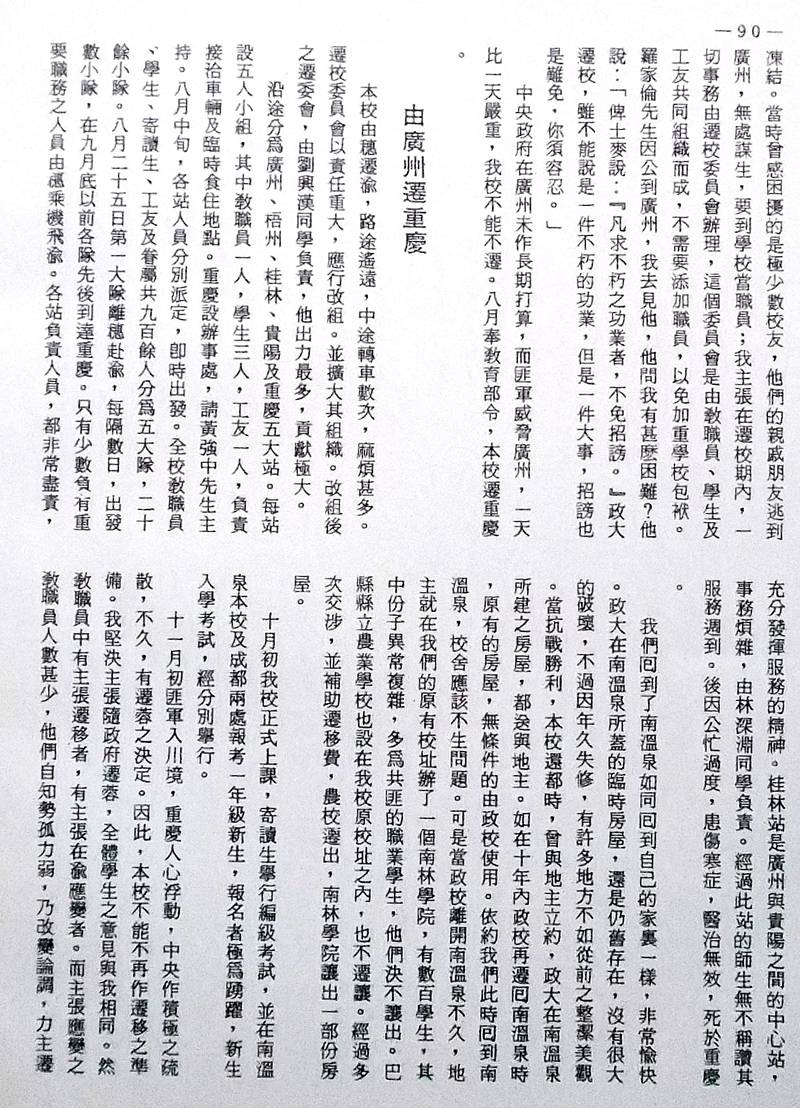 —90—
凍結。當時曾感困擾的是極少數校友，他們的親戚朋友逃到
廣州，無處謀生，要到學校當職員；我主張在遷校期內，一
切事務由遷校委員會辦理，這個委員會是由教職員、學生及
工友共同組織而成，不需要添加職員，以免加重學校包袱。
羅家倫先生因公到廣州，我去見他，他問我有甚麼困難？他
說：「俾士麥說：『凡求不朽之功業者，不免招謗。』政大
遷校，雖不能說是一件不朽的功業，但是一件大事，招謗也
是難免，你須容忍。」
中央政府在廣州未作長期打算，而匪軍威脅廣州，一天
比一天嚴重，我校不能不遷。八月奉教育部令，本校遷重慶
。
由廣州遷重慶
本校由穗遷渝，路途遙遠，中途轉車數次，麻煩甚多。
遷校委員會以責任重大，應行改組。並擴大其組織。改組後
之遷委會，由劉興漢同學負責，他出力最多，貢獻極大。
沿途分為廣州、梧州、桂林、貴陽及重慶五大站。每站
設五人小組，其中教職員一人，學生三人，工友一人，負責
接洽車輛及臨時食住地點。重慶設辦事處，請黃強中先生主
持。八月中旬，各站人員分別派定，卽時出發。全校教職員
、學生、寄讀生、工友及眷屬共九百餘人分為五大隊，二十
餘小隊。八月二十五日第一大隊離穗赴渝，每隔數日，出發
數小隊，在九月底以前各隊先後到達重慶。只有少數負有重
要職務之人員由穗乘機飛渝。各站負責人員，都非常盡責，
充分發揮服務的精神。桂林站是廣州與貴陽之間的中心站，
事務煩雜，由林深淵同學負責。經過此站的師生無不稱讚其
服務週到。後因公忙過度，患傷寒症，醫治無效，死於重慶
。
我們囘到了南溫泉如同囘到自己的家裏一樣，非常愉快
。政大在南溫泉所蓋的臨時房屋，還是仍舊存在，沒有很大
的破壞，不過因年久失修，有許多地方不如從前之整潔美觀
。當抗戰勝利，本校還都時，曾與地主立約，政大在南溫泉
所建之房屋，都送與地主。如在十年內政校再遷囘南溫泉時
，原有的房屋，無條件的由政校使用。依約我們此時囘到南
溫泉，校舍應該不生問題。可是當政校離開南溫泉不久，地
主就在我們的原有校址辦了一個南林學院，有數百學生，其
中份子異常複雜，多為共匪的職業學生，他們決不讓出。巴
縣縣立農業學校也設在我校原校址之內，也不遷讓。經過多
次交涉，並補助遷移費，農校遷出，南林學院讓出一部份房
屋。
十月初我校正式上課，寄讀生舉行編級考試，並在南溫
泉本校及成都兩處報考一年級新生，報名者極為踴躍，新生
入學考試，經分別舉行。
十一月初匪軍入川境，重慶人心浮動，中央作積極之疏
散，不久，有遷蓉之決定。因此，本校不能不再作遷移之準
備。我堅決主張隨政府遷蓉，全體學生之意見與我相同。然
教職員中有主張遷移者，有主張在渝應變者。而主張應變之
教職員人數甚少，他們自知勢孤力弱，乃改變論調，力主遷